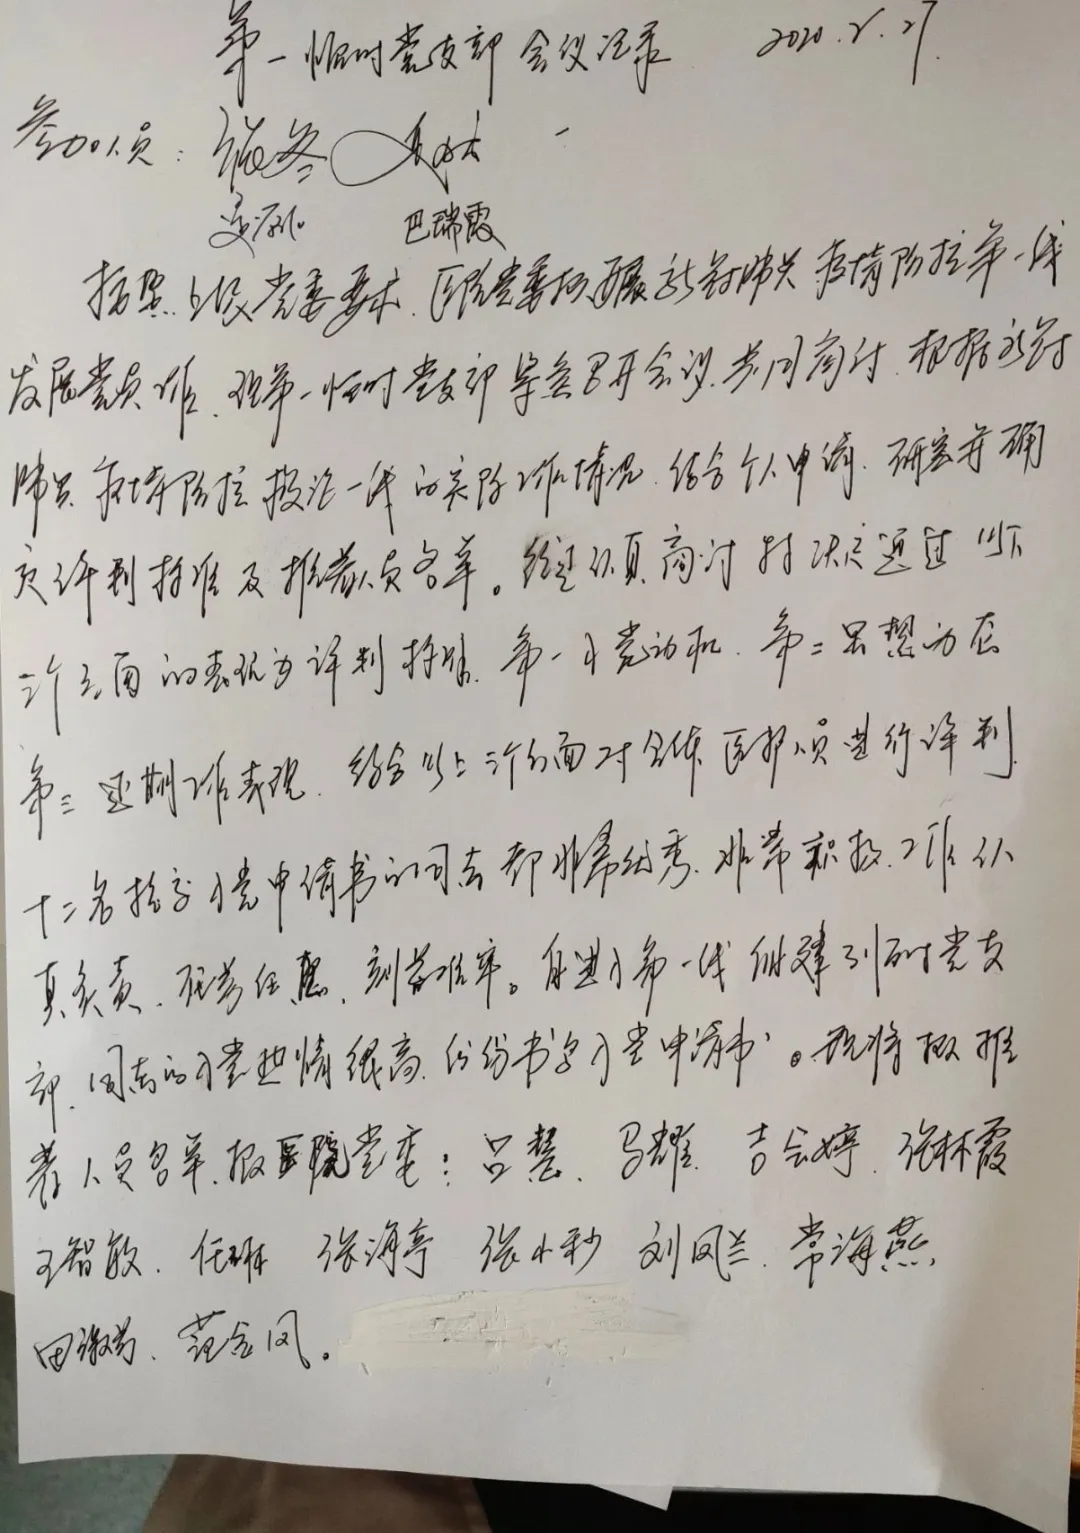 第一临时党支部会议记录 2020.2.27
参加人员:
巴瑞霞
按照上级党委要求,医院党委拟开展新冠肺炎疫情防控第一线
发展党员工作,现第一临时党支部党委召开会议,共同商讨,根据新冠
肺炎疫情防控救治一线的实际工作情况,结合个人申请,研究并确
定评判标准及推荐人员名单。经过认真商讨决定通过以下
三个方面的表现为评判标准,第一入党动机,第二思想动态
第三近期工作表现,结合以上三个方面对全体医护人员进行评判
十二名提交入党申请书的同志都非常优秀,非常积极,工作认
真负责,任劳任怨,刻苦。自进入第一线组建到临时党支
部,同志的入党热情很高,份份书写入党申请书。现将拟推
荐人员名单,报医院党委:吕慧、马耀、吉会婷、张林霞
王智敏、任琳 张海亭 张小秒 刘凤兰、常海燕
田淑芳、范金凤。